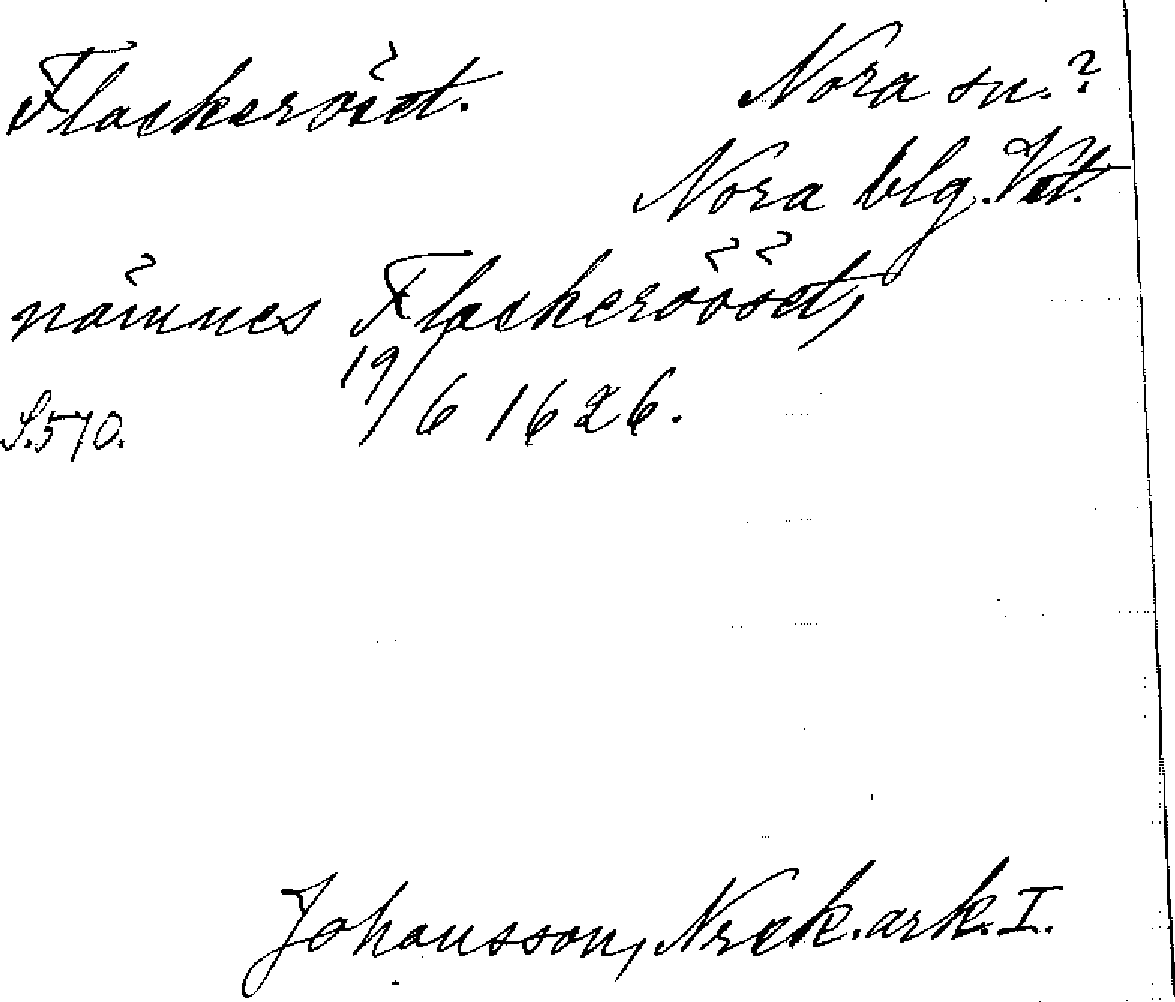 Flackeröset.
Nora sn.?
Nora blg. Vstl.
nämnes Flackerööset,
19/6 1626.
S.570.
Johansson, Nrck. ark. I.